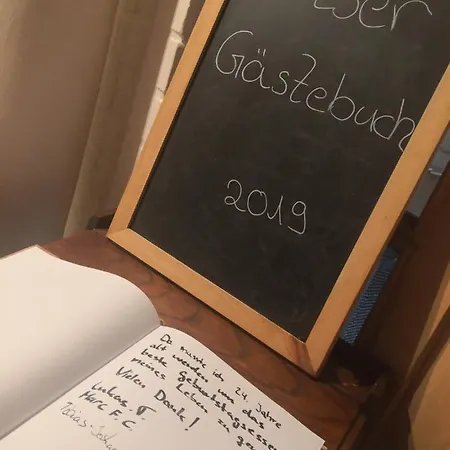 Gästebuch
2019
Da musste ich 24 Jahre
alt werden um das
beste Geburtstagsessen
meines Leben zu
Vielen Dank!
Lukas. T.
Marc F. C.
Tobias